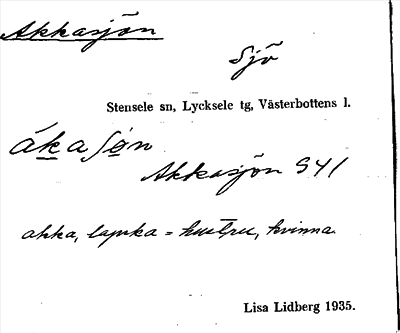 Akkasjön
Sjö
Stensele sn, Lycksele tg, Västerbottens l.
ákaſøn
Akkasjön S41
akka, lapska = hustru, kvinna
Lisa Lidberg 1935.